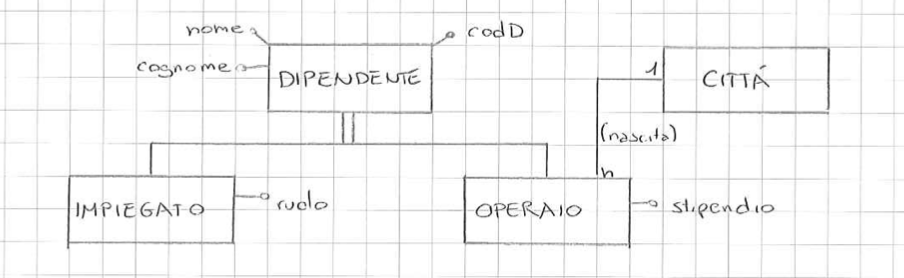 nome
codD
cognome
DIPENDENTE
1
CITTÁ
(nascita)
n
IMPIEGATO
ruolo
OPERAIO
stipendio